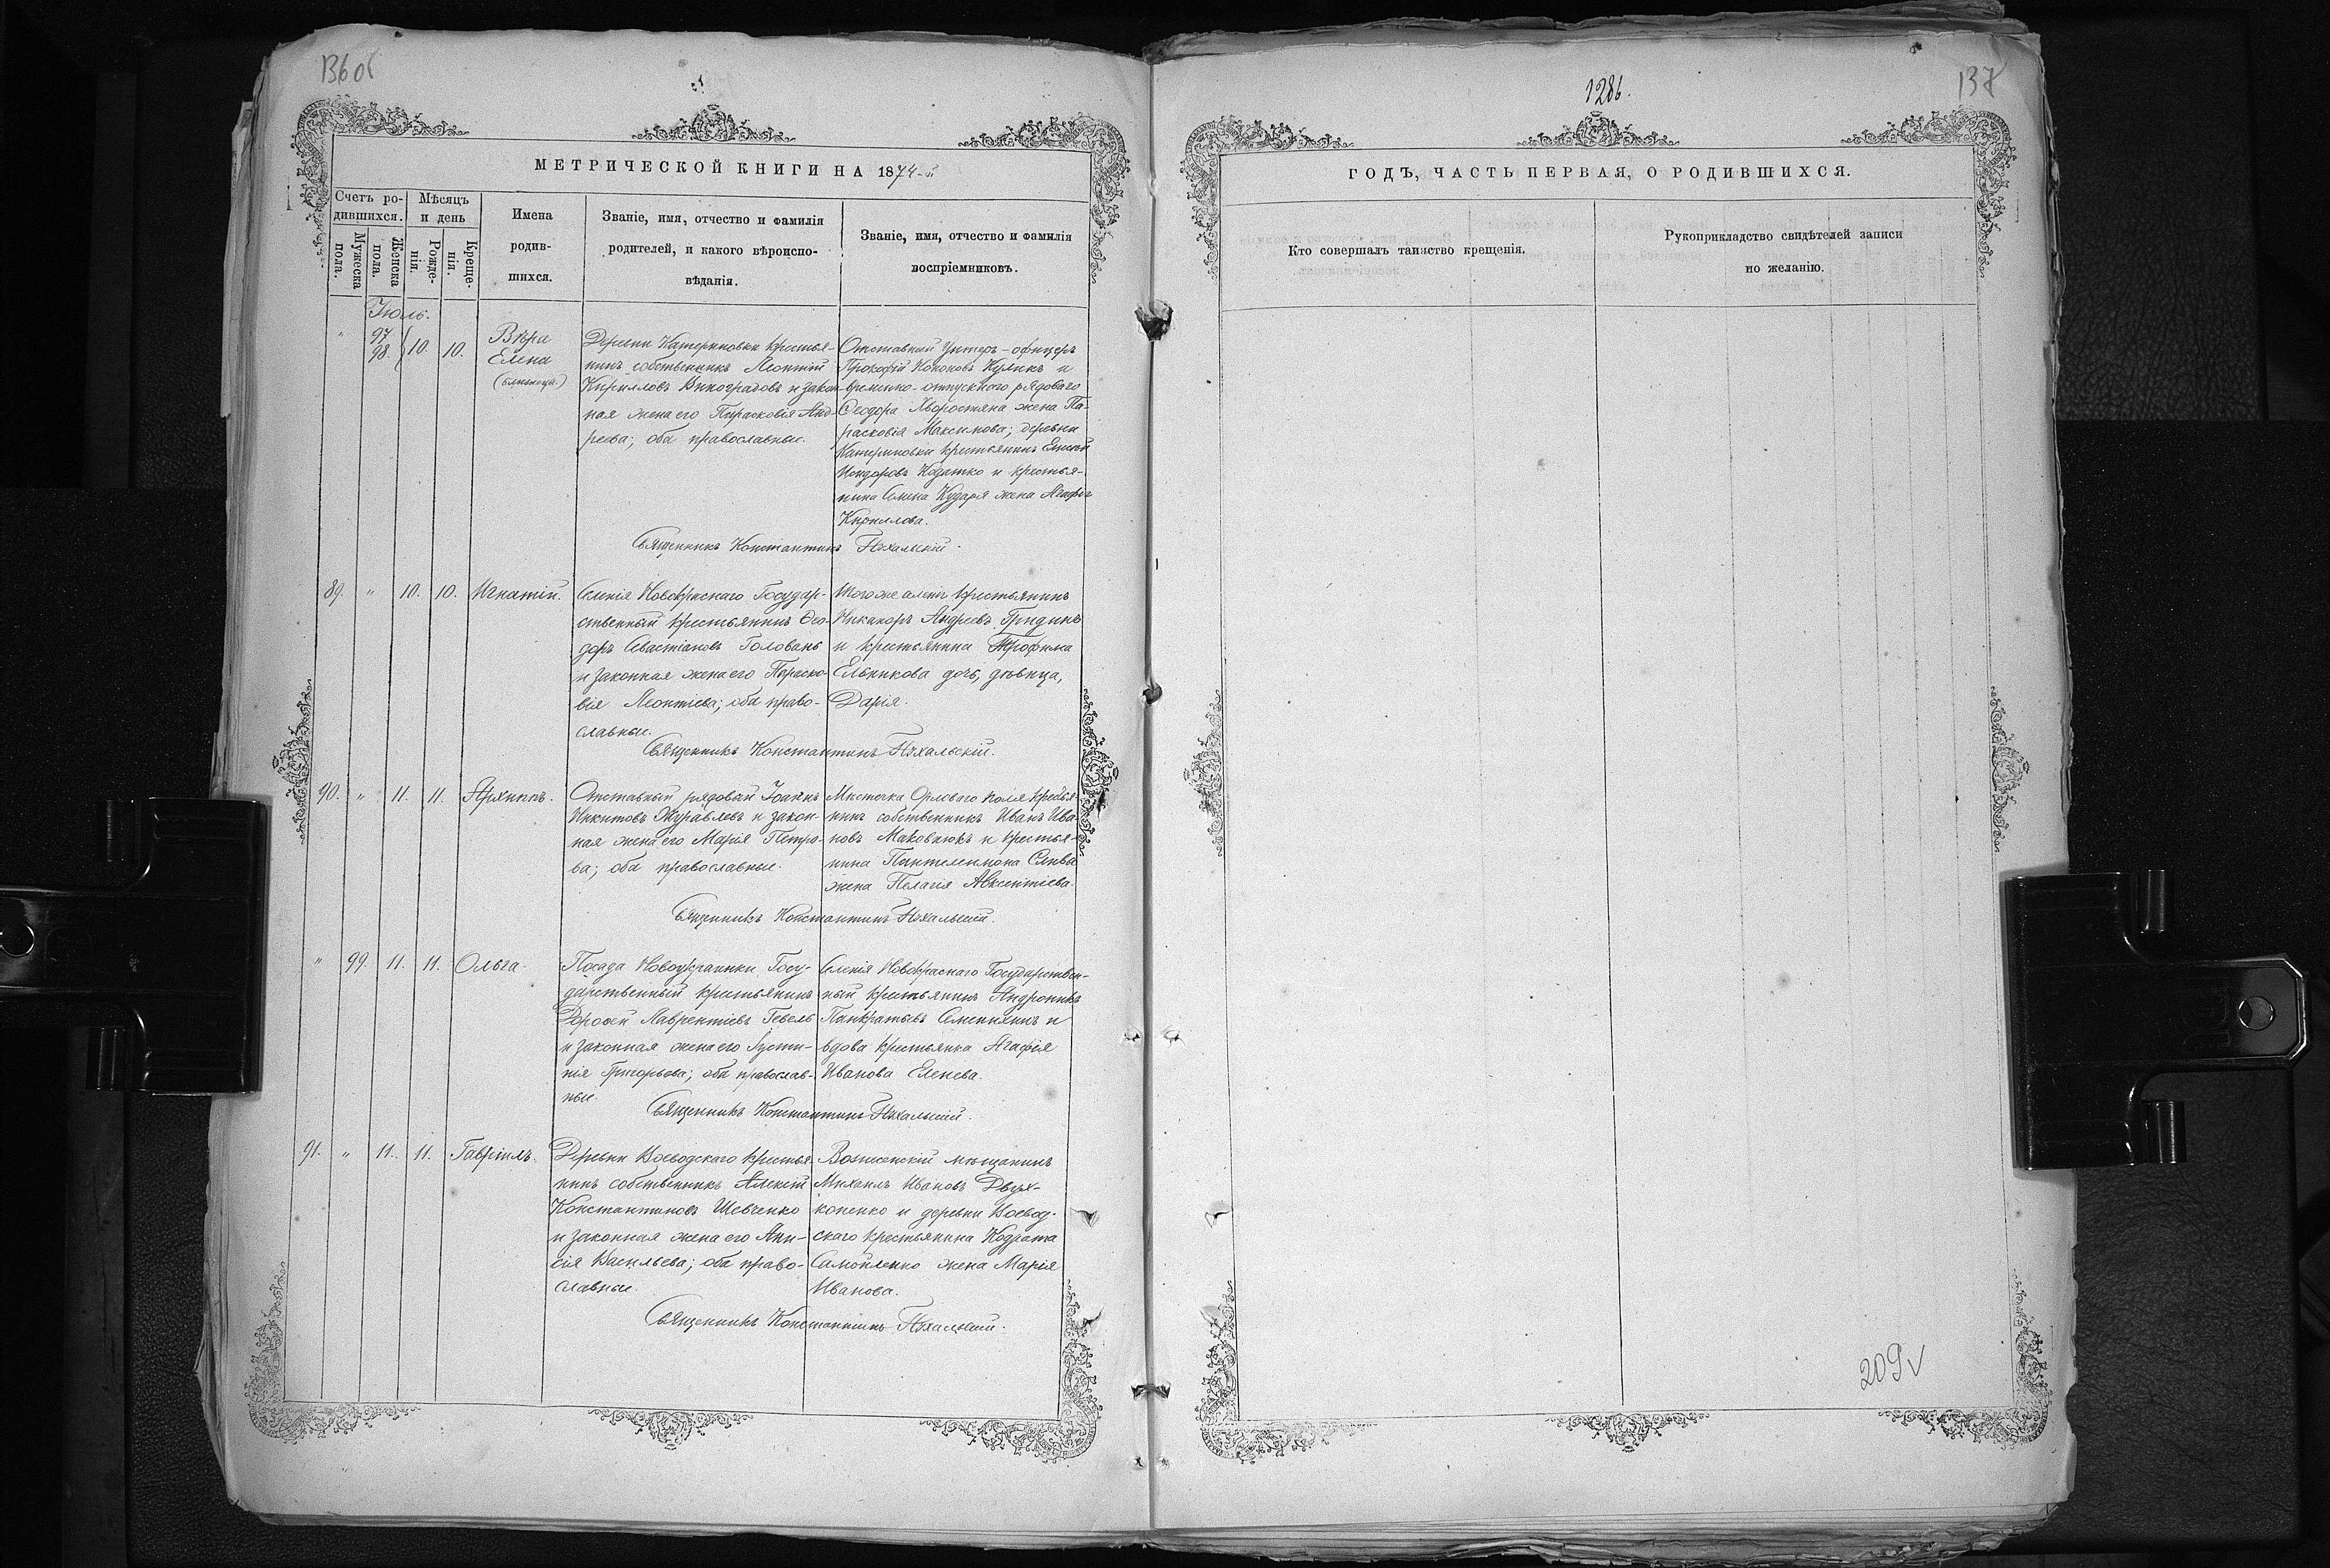 136об
1286.
137
МЕТРИЧЕСКОЙ КНИГИ НА 1874-й
ГОДЪ, ЧАСТЬ ПЕРВАЯ, О РОДИВШИХСЯ.
Счетъ ро-
дившихся.
Мужеска
пола.
Женска
пола.
Мѣсяцъ
и день
Рожде-
нія.
Креще-
нія.
Имена
родив-
шихся.
Званіе, имя, отчество и фамилія
родителей, и какого вѣроиспо-
вѣданія.
Званіе, имя, отчество и фамилія
воспріемниковъ.
Кто совершалъ таинство крещенія.
Рукоприкладство свидѣтелей записи
по желанію.
Іюль.
" 97. 98. 10. 10.
Вѣра
Елена
(близнецы.)
Деревни Катериновки крестья-
нинъ собственникъ Леонтій
Кирилловъ Виноградовъ и закон-
ная жена его Парасковія Анд-
реева; оба православные.
Отставный Унтеръ-офицеръ
Прокофій Кононовъ Куликъ и
временно-отпускного рядоваго
Ѳеодора Хворостяна жена Па-
расковія Максимова; деревни
Катериновки крестьянинъ
и крестья-
нина Семена Кударя жена Агафія
Кириллова.
Священникъ Константинъ Нѣхальскій.
89. " 10. 10. Игнатій.
Селенія Новокраснаго Государ-
ственный крестьянинъ Ѳео-
доръ Севастіановъ Головань
и законная жена его Параско-
вія Леонтіева; оба право-
славные.
Того же селенія крестьянинъ
Никаноръ Андреевъ Гридинъ
и крестьянина Трофима
Ельникова дочь, дѣвица,
Дарія.
Священникъ Константинъ Нѣхальскій.
90. " 11. 11. Архиппъ.
Отставный рядовой Іоаннъ
Никитовъ Журавлевъ и закон-
ная жена его Марія Петро-
ва; оба православные.
Мѣстечка Орловаго поля крестья-
нинъ собственникъ Иванъ Ива-
новъ Маковнюкъ и крестья-
нина Пантелеимона Сливы
жена Пелагія Авксентіева.
Священникъ Константинъ Нѣхальскій.
" 99. 11. 11. Ольга.
Посада Новоукраинки Госу-
дарственный крестьянинъ
Дорофей Лаврентіевъ Гевель
и законная жена его Густи-
нія Григорьева; оба православ-
ные.
Селенія Новокраснаго Государствен-
ный крестьянинъ Андроникъ
Панкратьевъ Семенякинъ и
вдова крестьянка Агафія
Иванова Еленева.
Священникъ Константинъ Нѣхальскій.
91. " 11. 11. Гавріилъ.
Деревни Воеводскаго крестья-
нинъ собственникъ Алексій
Константиновъ Шевченко
и законная жена его Ани-
сія Васильева; оба право-
славные.
Вознесенскій мѣщанинъ
Михаилъ Ивановъ Двух-
копенко и деревни Воевод-
скаго крестьянина Кодрата
Самойленко жена Марія
Иванова.
Священникъ Константинъ Нѣхальскій.
209